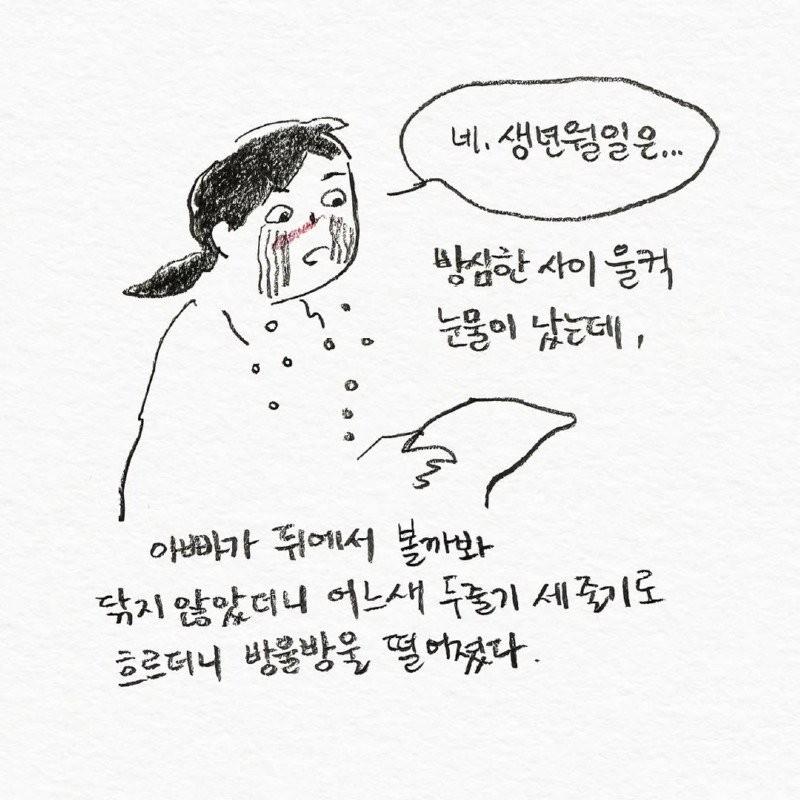 네. 생년월일은...
방심한 사이 울컥
눈물이 났는데,
아빠가 뒤에서 볼까봐
닦지 않았더니 어느새 두줄기 세줄기로
흐르더니 방울방울 떨어졌다.